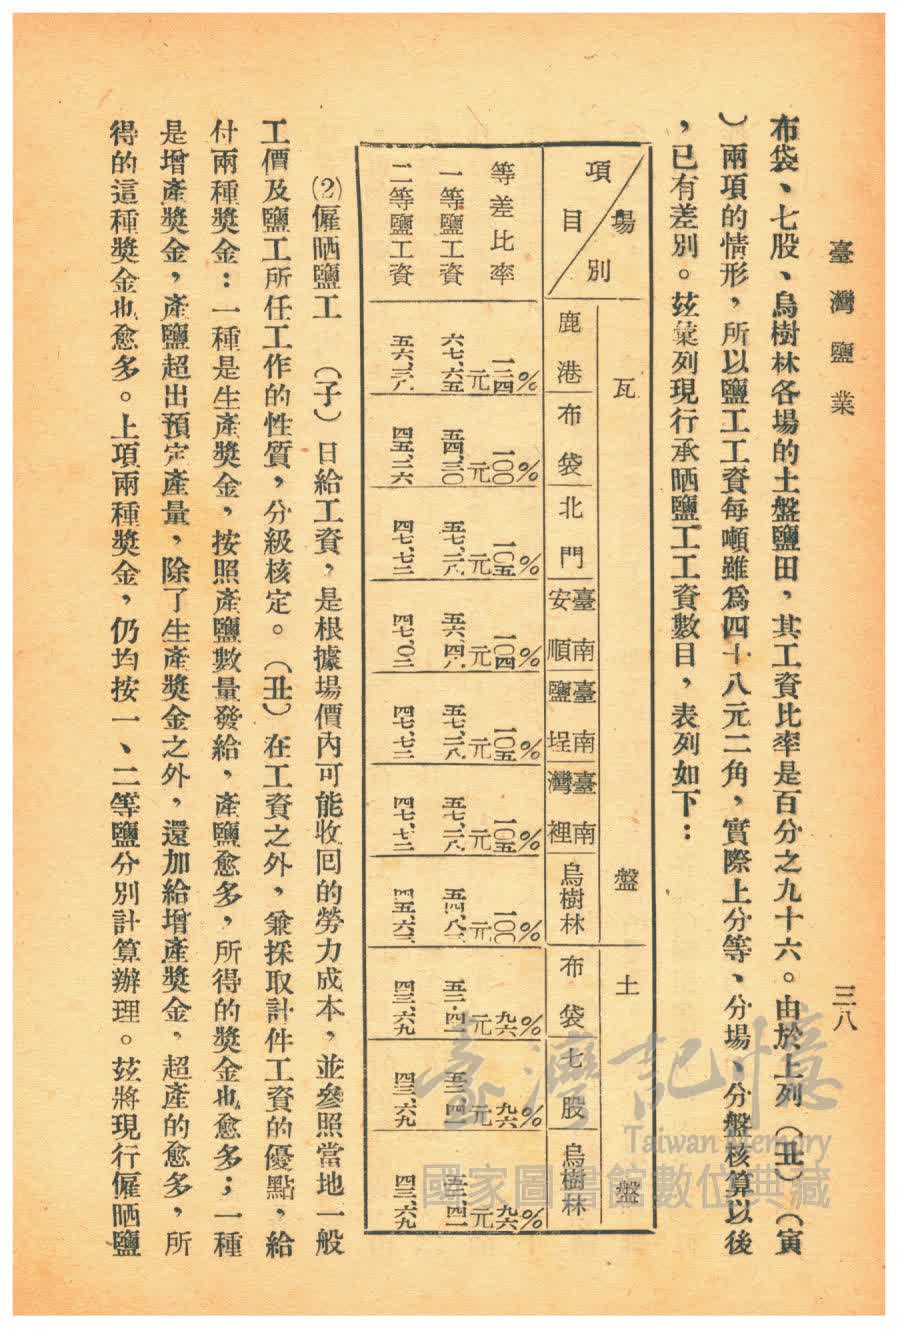 臺灣鹽業
三八
布袋、七股、烏樹林各場的土盤鹽田，其工資比率是百分之九十六。由於上列（丑）（寅
）兩項的情形，所以鹽工工資每噸雖爲四十八元二角，實際上分等、分場、分盤核算以後
，已有差別。玆彙列現行承晒鹽工工資數目，表列如下：
場別 瓦盤 土盤
項目 鹿港 布袋 北門 臺南安順 臺南鹽埕 臺南灣裡 烏樹林 布袋 七股 烏樹林
等差比率 一二四% 一〇〇% 一〇五% 一〇四% 一〇五% 一〇五% 一〇〇% 九六% 九六% 九六%
一等鹽工資 六七、六五元 五四、三〇元 五七、二八元 五六、四八元 五七、二八元 五七、二八元 元 五二、四二元 五二、四二元 五二、四二元
二等鹽工資 五六、三八 四五、二六 四七、七三 四七、〇二 四七、七三 四七、七三 四三、六九 四三、六九 四三、六九
⑵僱晒鹽工　（子）日給工資，是根據場價內可能收回的勞力成本，並參照當地一般
工價及鹽工所任工作的性質，分級核定。（丑）在工資之外，兼採取計件工資的優點，給
付兩種獎金：一種是生產獎金，按照產鹽數量發給，產鹽愈多，所得的獎金也愈多；一種
是增產獎金，產鹽超出預定產量，除了生產獎金之外，還加給增產獎金，超產的愈多，所
得的這種獎金也愈多。上項兩種獎金，仍均按一、二等鹽分別計算辦理。玆將現行僱晒鹽
臺灣記憶
Taiwan Memory
國家圖書館數位典藏